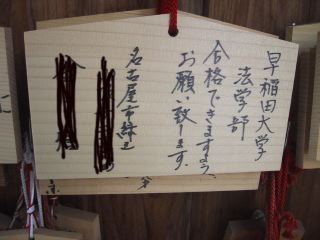 早稲田大学
法学部
合格できますよう、
お願い致します。
名古屋市緑区